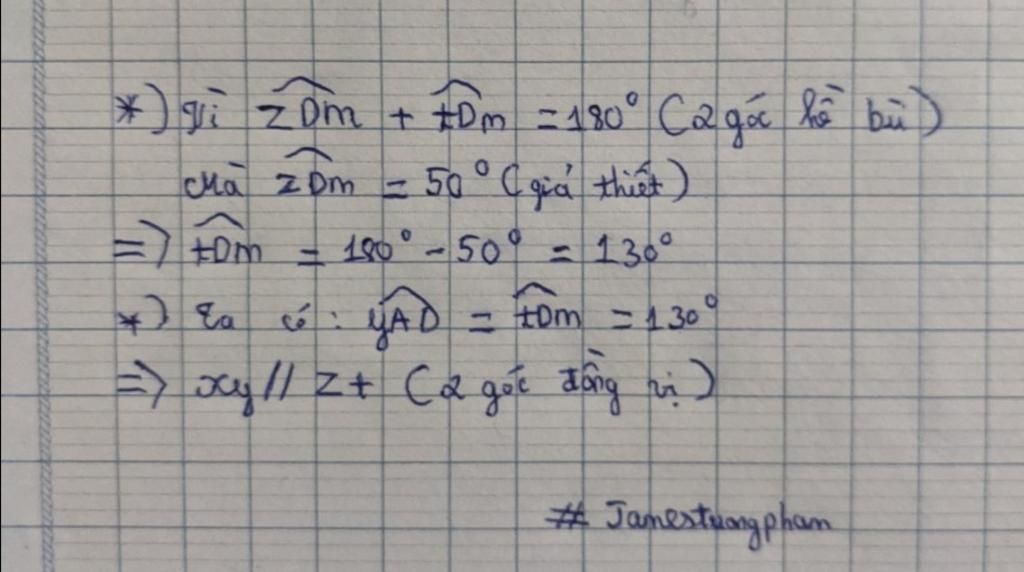 *) Vì zDm + tDm = 180° (2 góc kề bù)
Mà zDm = 50° (giả thiết)
=> tDm = 180° - 50° = 130°
*) Ta có : yAD = tDm = 130°
=> xy // zt (2 góc đồng vị)
# Jamestuongpham